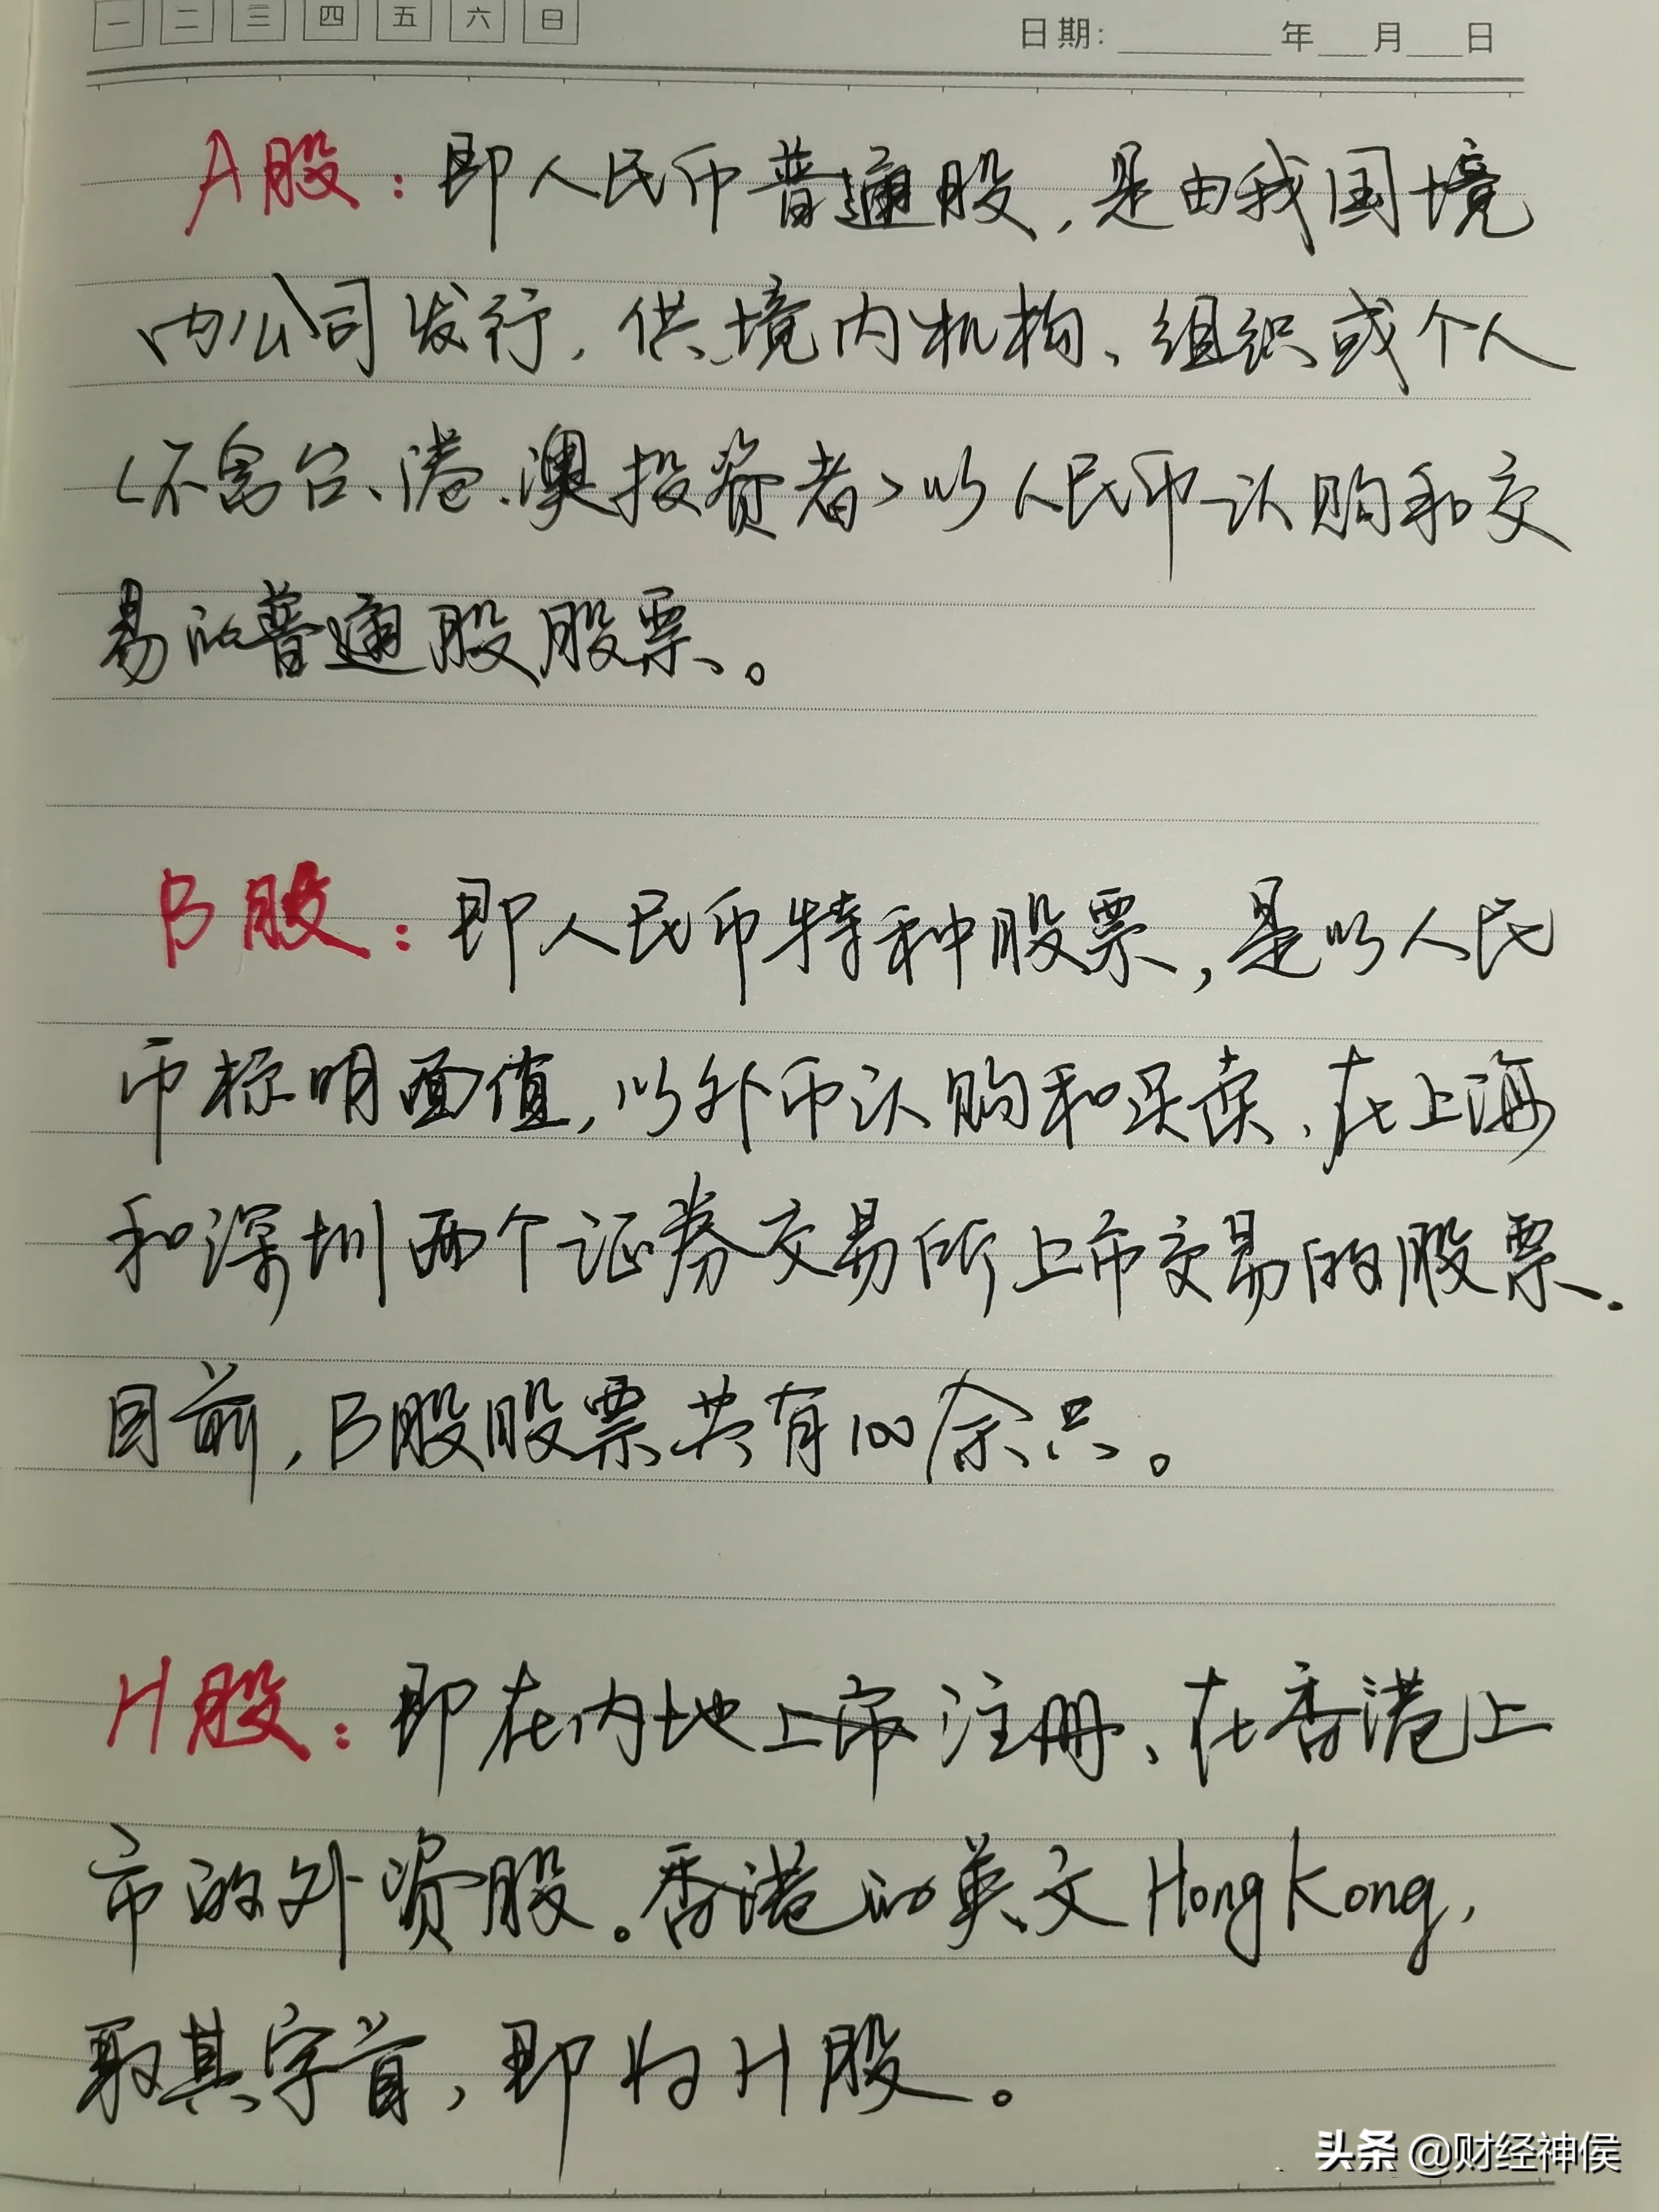 一 二 三 四 五 六 日
日期: 年 月 日
A股：即人民币普通股，是由我国境
内公司发行，供境内机构、组织或个人
<不含台、港、澳投资者>以人民币认购和交
易的普通股股票。
B股：即人民币特种股票，是以人民
币标明面值，以外币认购和买卖、在上海
和深圳两个证券交易所上市交易的股票.
目前，B股股票共有100余只。
H股：即在内地上市注册、在香港上
市的外资股。香港的英文HongKong，
取其字首，即为H股。
头条 @财经神侯